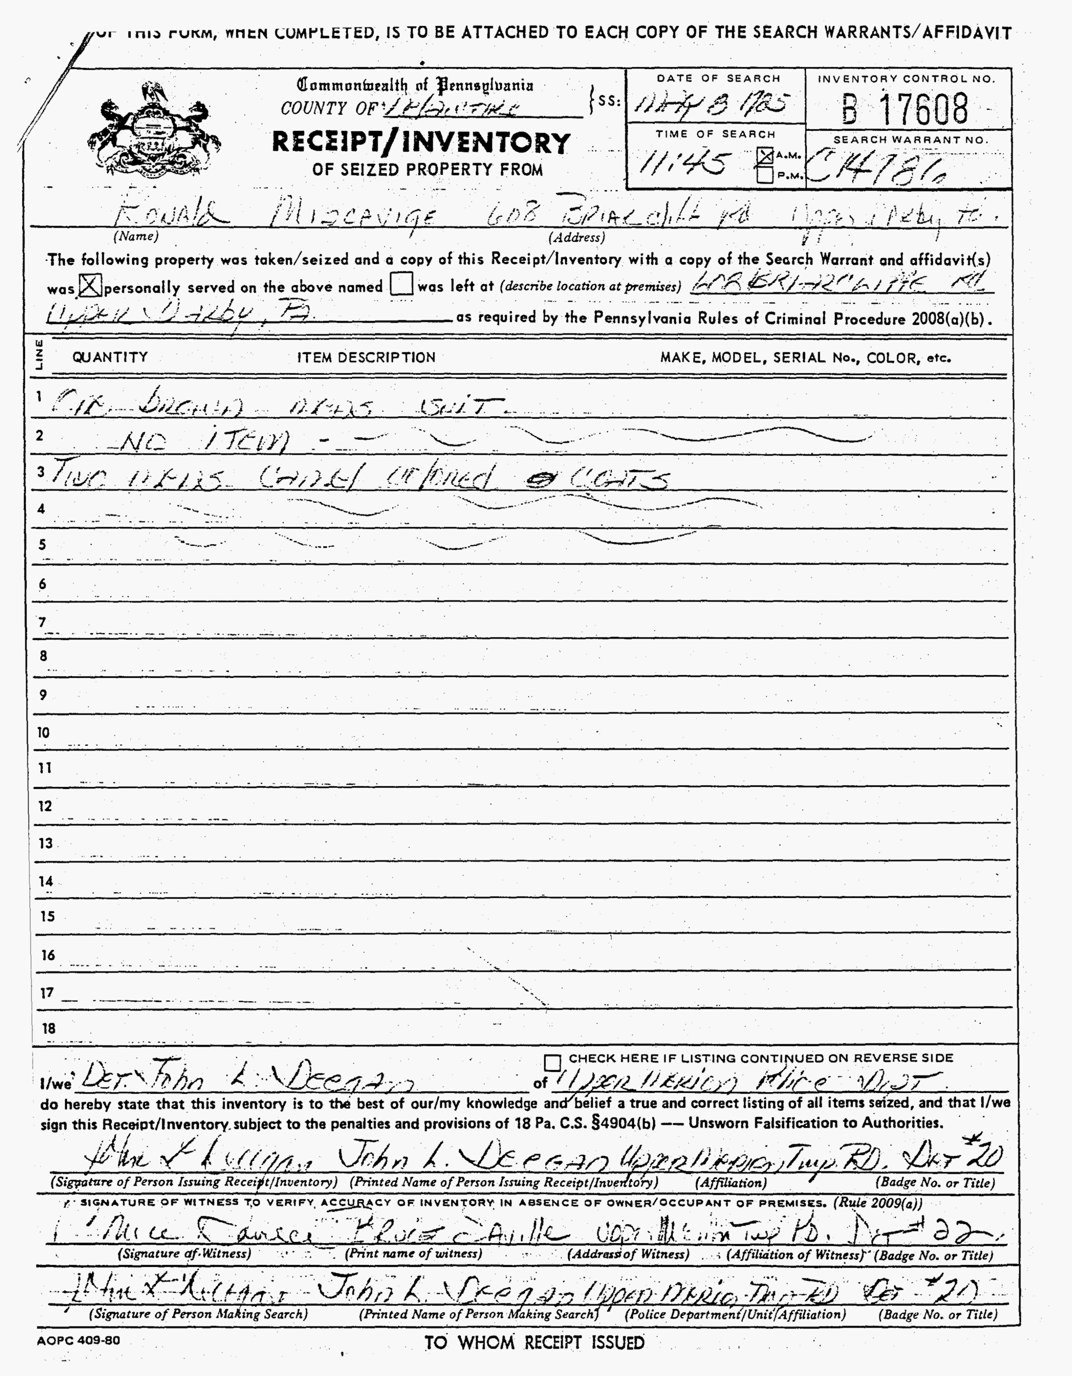 OF THIS FORM, WHEN COMPLETED, IS TO BE ATTACHED TO EACH COPY OF THE SEARCH WARRANTS/AFFIDAVIT
Commonwealth of Pennsylvania
COUNTY OF
SS:
RECEIPT/INVENTORY
OF SEIZED PROPERTY FROM
DATE OF SEARCH
MAY 13 1985
INVENTORY CONTROL NO.
B 17608
TIME OF SEARCH
11:45 A.M.
P.M.
SEARCH WARRANT NO.
C14786
RONALD MISCAVIGE 608 BRIARCLIFF Rd Upper Darby
(Name) (Address)
The following property was taken/seized and a copy of this Receipt/Inventory with a copy of the Search Warrant and affidavit(s)
was personally served on the above named was left at (describe location at premises) 608 BRIARCLIFFE Rd
UPPER Darby, PA as required by the Pennsylvania Rules of Criminal Procedure 2008(a)(b).
LINE QUANTITY ITEM DESCRIPTION MAKE, MODEL, SERIAL No., COLOR, etc.
1 BROWN MENS SUIT
2 NO ITEM
3 TWO MENS CAMEL COLORED COATS
4
5
6
7
8
9
10
11
12
13
14
15
16
17
18
CHECK HERE IF LISTING CONTINUED ON REVERSE SIDE
I/we DET. John L. DEEGAN of UPPER MERION Police DEPT.
do hereby state that this inventory is to the best of our/my knowledge and belief a true and correct listing of all items seized, and that I/we
sign this Receipt/Inventory subject to the penalties and provisions of 18 Pa. C.S. §4904(b) —— Unsworn Falsification to Authorities.
John L. DEEGAN UPPER MERION Twp. PD. DET #20
(Signature of Person Issuing Receipt/Inventory) (Printed Name of Person Issuing Receipt/Inventory) (Affiliation) (Badge No. or Title)
SIGNATURE OF WITNESS TO VERIFY ACCURACY OF INVENTORY IN ABSENCE OF OWNER/OCCUPANT OF PREMISES. (Rule 2009(a))
BRUCE SAVILLE Upper Merion Twp PD. Det #22
(Signature of Witness) (Print name of witness) (Address of Witness) (Affiliation of Witness) (Badge No. or Title)
John L. DEEGAN UPPER MERION Twp PD DET #20
(Signature of Person Making Search) (Printed Name of Person Making Search) (Police Department/Unit/Affiliation) (Badge No. or Title)
AOPC 409-80
TO WHOM RECEIPT ISSUED